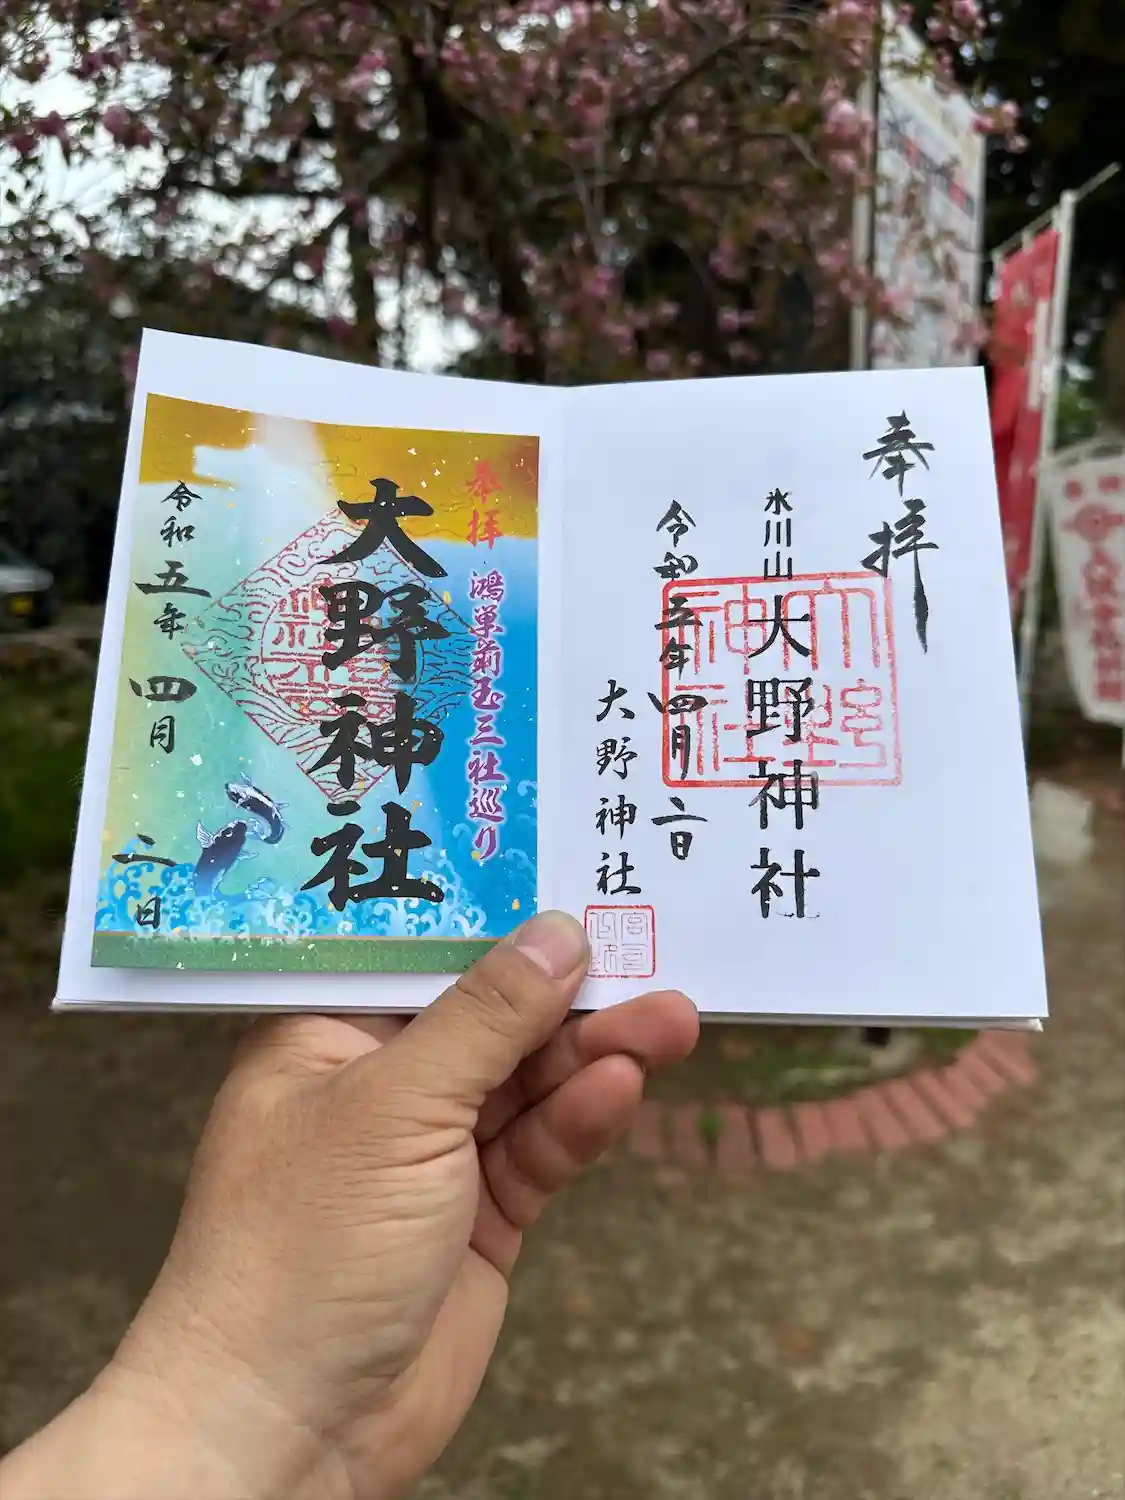 奉拝
氷川山大野神社
令和五年四月二日
大野神社
大野神社
宮司
奉拝
鴻巣前玉三社巡り
大野神社
令和五年
四月
二日